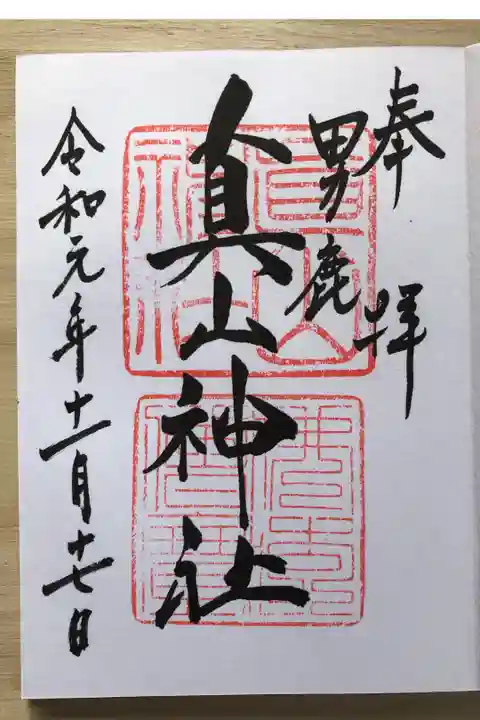 奉拝
男鹿
真山神社
令和元年十一月十七日